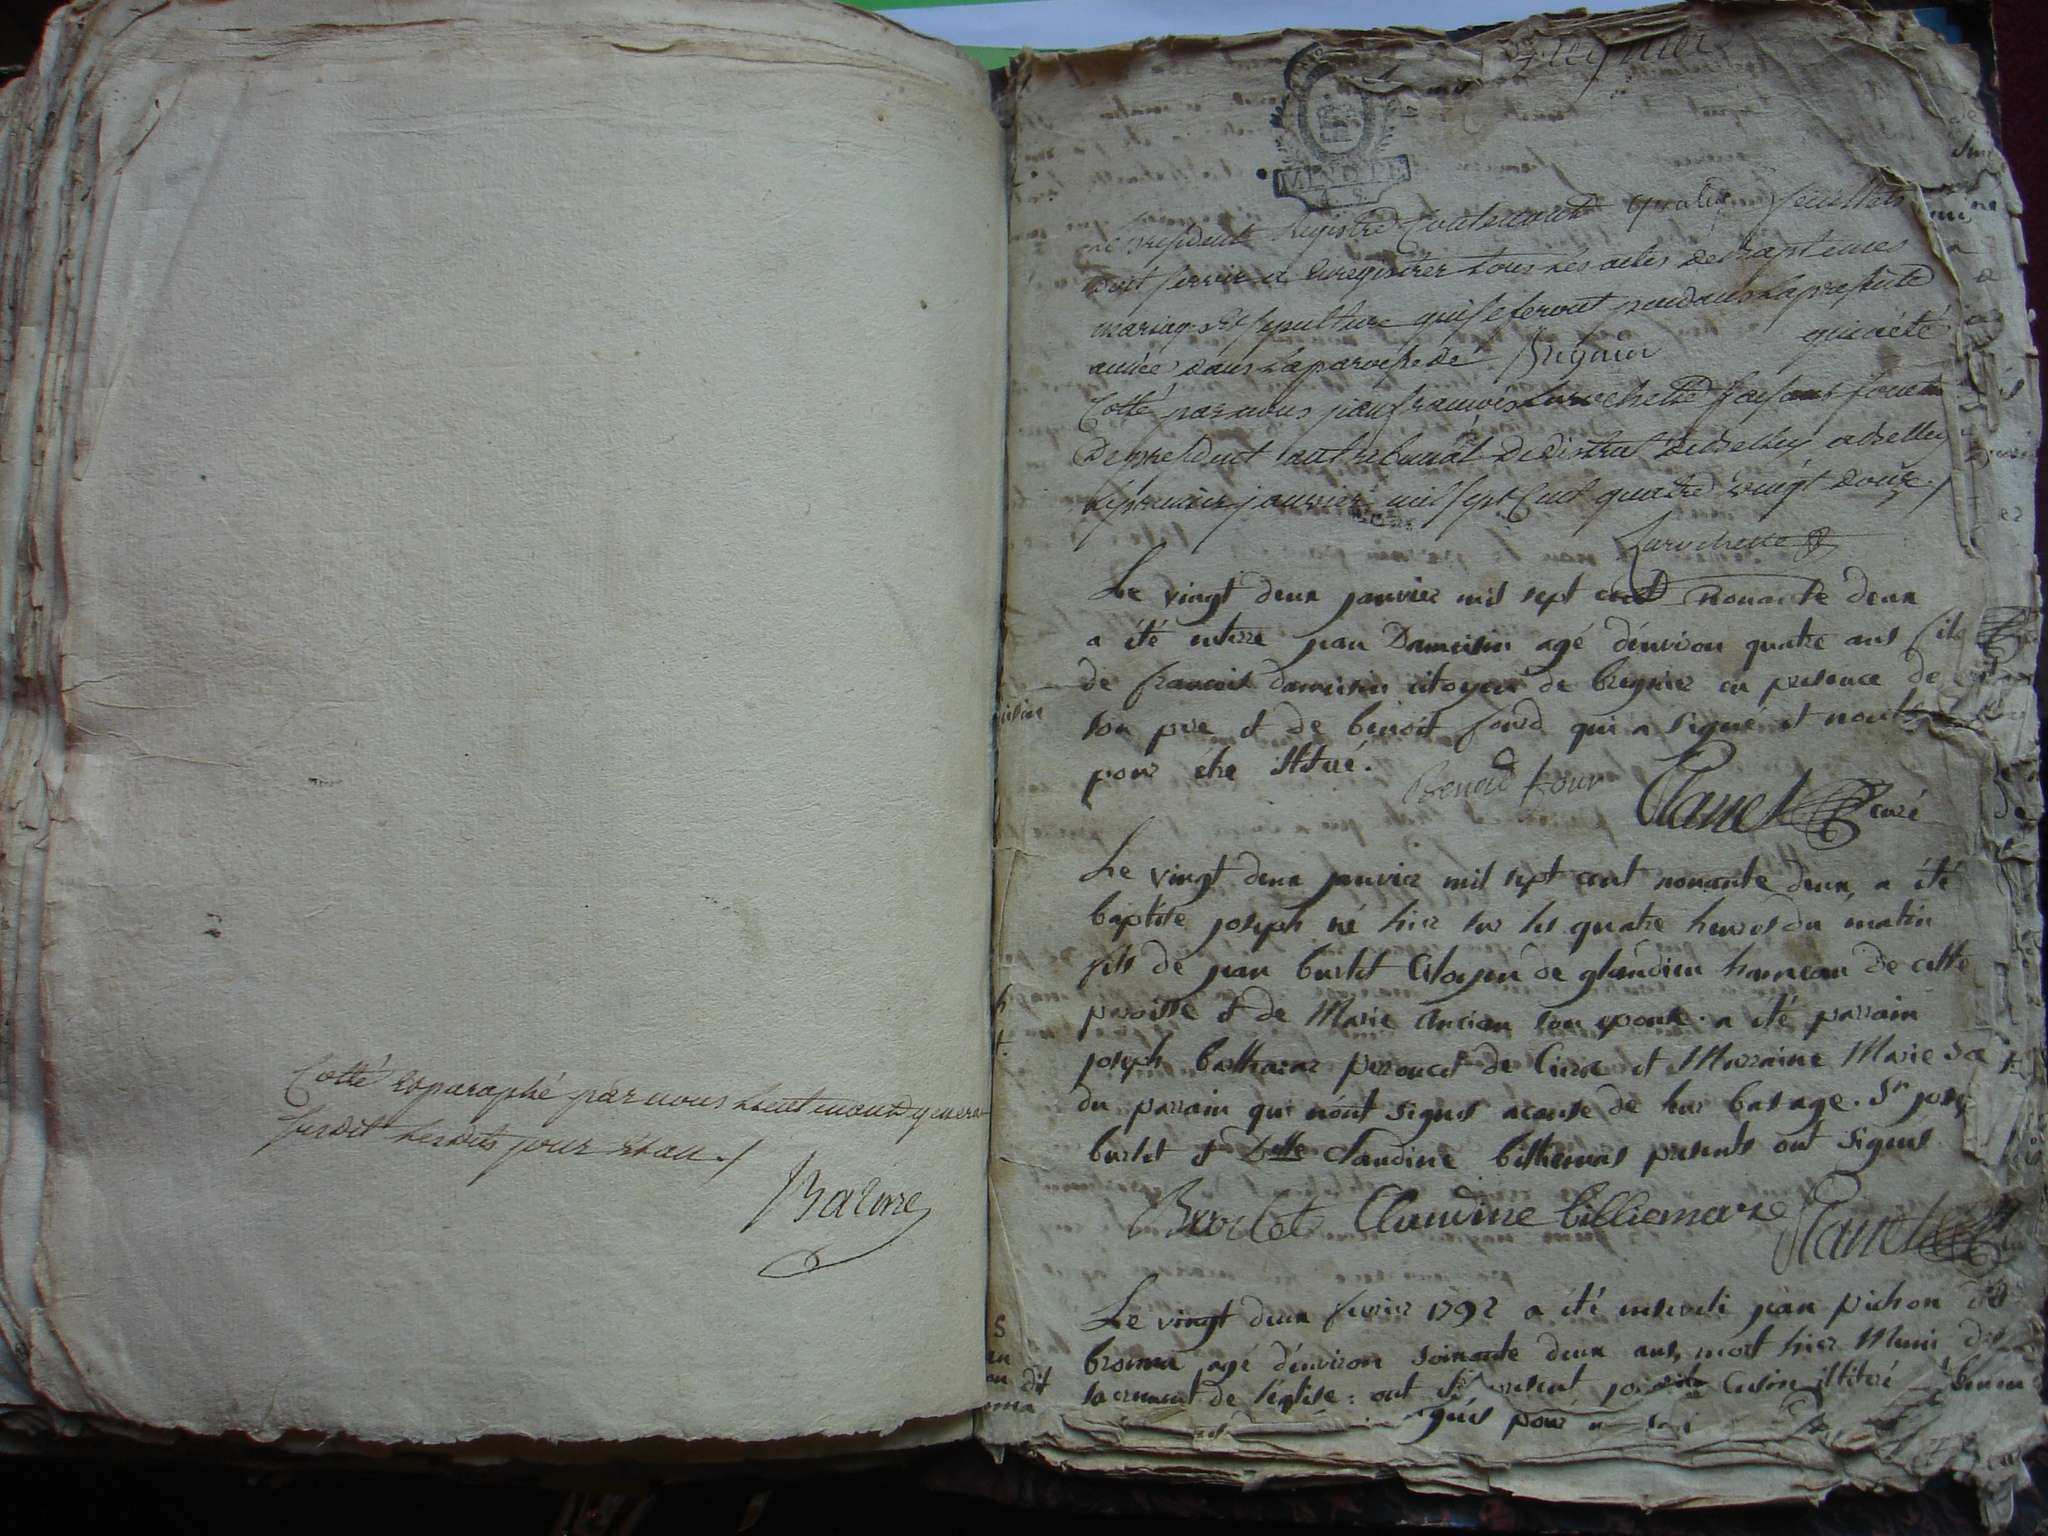 Cotté et paraphé par nous Lieutenant general
susdit lesdits jour et an ./
Barme
MINUTE
4 S
Le present Registre Contenant quatre feuillets
doit servir a enregistrer tous les actes de baptemes
mariages et sepulture qui se feront pendant la presente
année dans la paroisse de Bregnier qui a eté
Cotté par nous jean françois Larochette faisant fonction
de president au tribunal de district de Belley a Belley
le premier janvier mil sept Cent quatre vingt douze ./
Larochette
Le vingt deux janvier mil sept cent nonante deux
a été enterré jean Dameisin agé d'environ quatre ans fils
de francois dameisin citoyen de bregnier en presence de
son pere et de benoit four qui a signé et non le
pour etre illitere.
Benoit four
Planet curé
Le vingt deux janvier mil sept cent nonante deux, a été
baptise joseph né hier sur les quatre heures du matin
fils de jean burlet Citoyen de glandieu hameau de cette
paroisse et de Marie ancian son epouse. a été parrain
joseph balthazar peroncet de Ciers et Marraine Marie
du parrain qui n'ont signés acause de leur bas age. Sr jos
burlet et Delle Claudine billiemas presents ont signes
Burlet Claudine billiemaze Planet
Le vingt deux fevrier 1792 a été enseveli jean pichon dit
broma agé d'environ soixante deux ans, mort hier Muni des
sacrement de l'eglise : ont été present Cusin illitere
pour
dit